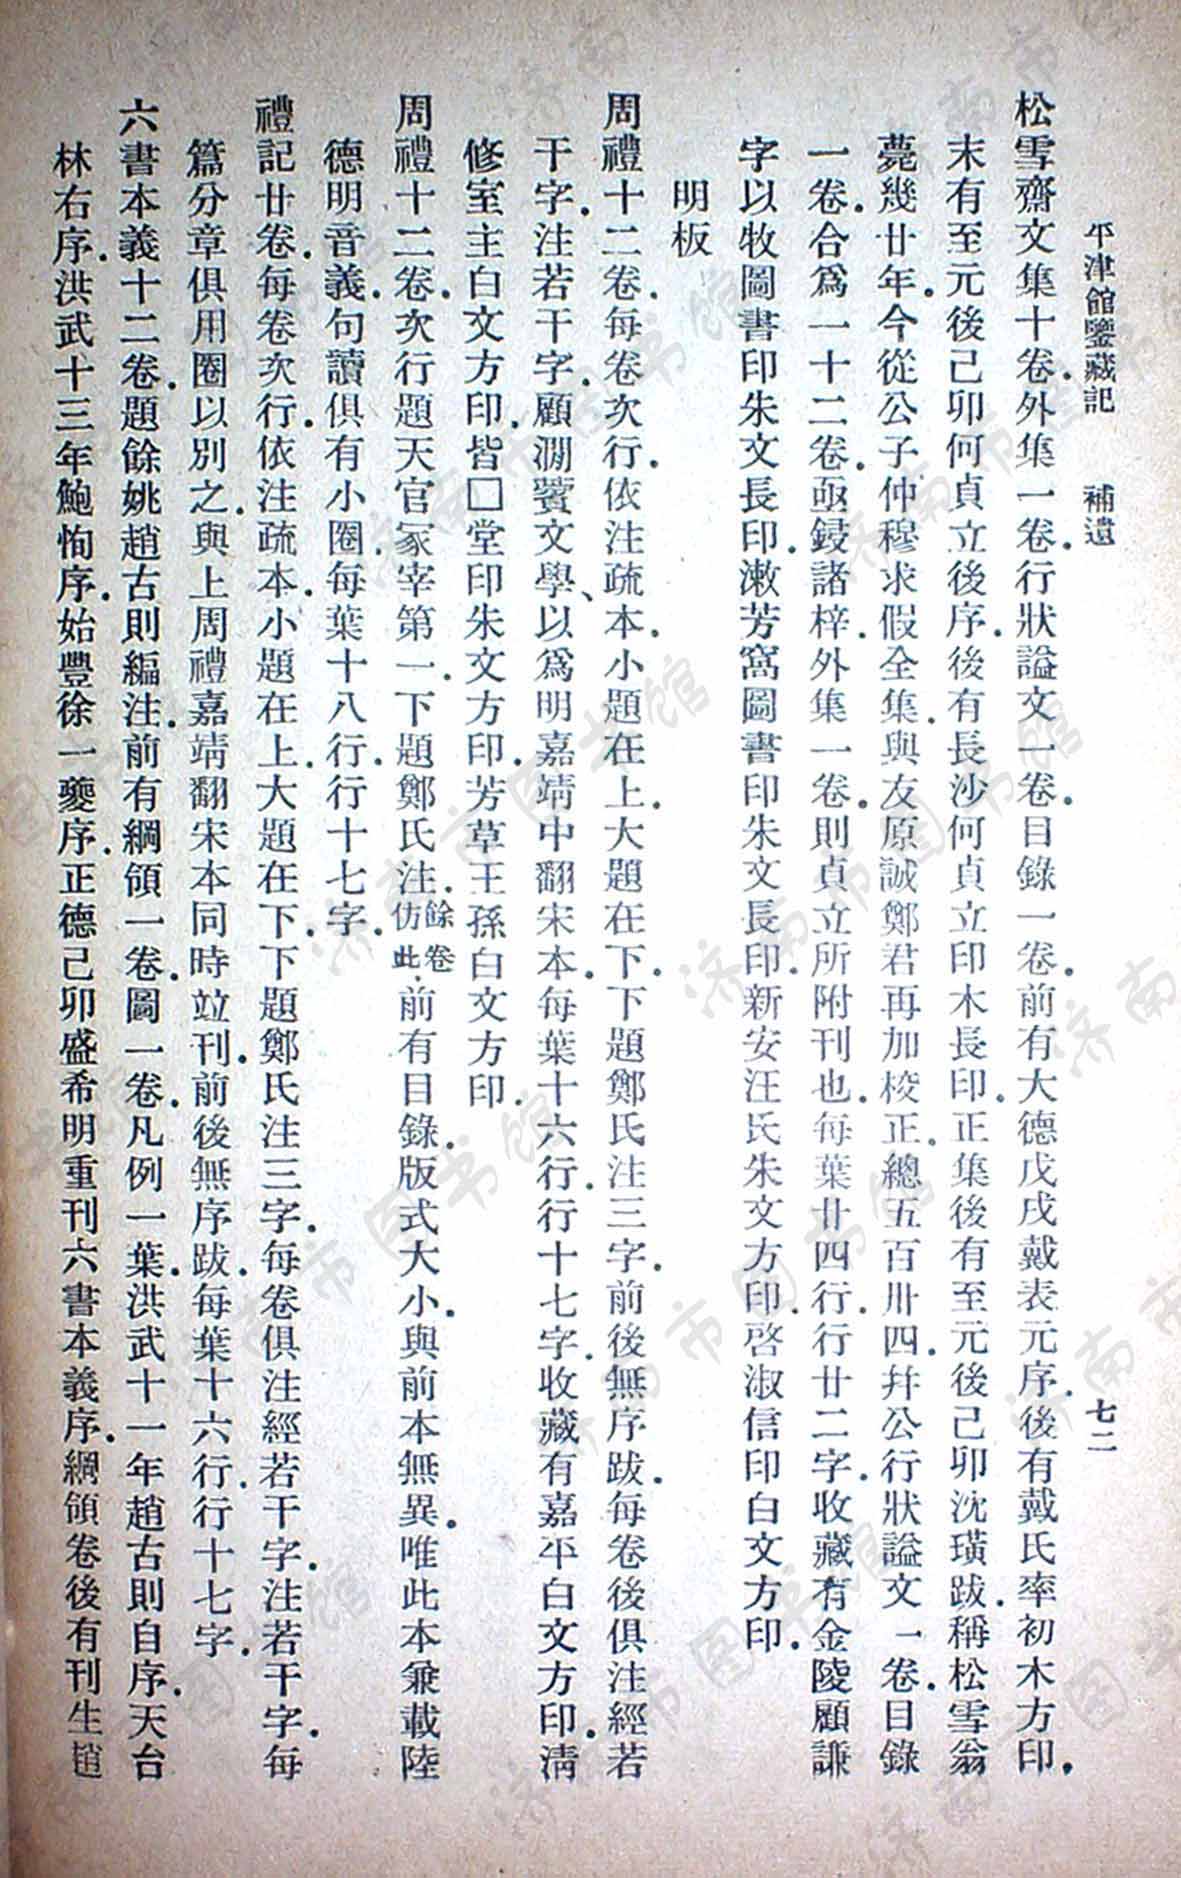 平津館鑒藏記　補遺　七二
松雪齋文集十卷.外集一卷.行狀謚文一卷.目錄一卷.前有大德戊戌戴表元序.後有戴氏率初木方印.
末有至元後己卯何貞立後序.後有長沙何貞立印木長印.正集後有至元後己卯沈璜跋.稱松雪翁
薨幾廿年.今從公子仲穆求假全集.與友原誠鄭君再加校正.總五百卅四.幷公行狀謚文一卷.目錄
一卷.合爲一十二卷.亟鋟諸梓.外集一卷.則貞立所附刊也.每葉廿四行.行廿二字.收藏有金陵顧謙
字以牧圖書印朱文長印.漱芳窩圖書印朱文長印.新安汪氏朱文方印.啓淑信印白文方印.
明板
周禮十二卷.每卷次行.依注疏本.小題在上.大題在下.下題鄭氏注三字.前後無序跋.每卷後俱注經若
干字.注若干字.顧澗薲文學、以爲明嘉靖中翻宋本.每葉十六行.行十七字.收藏有嘉平白文方印.淸
修室主白文方印.皆□堂印朱文方印.芳草王孫白文方印.
周禮十二卷.次行題天官冢宰第一.下題鄭氏注.餘卷仿此.前有目錄.版式大小.與前本無異.唯此本兼載陸
德明音義.句讀俱有小圈.每葉十八行.行十七字.
禮記廿卷.每卷次行.依注疏本.小題在上.大題在下.下題鄭氏注三字.每卷俱注經若干字.注若干字.每
篇分章俱用圈以別之.與上周禮嘉靖翻宋本同時竝刊.前後無序跋.每葉十六行.行十七字.
六書本義十二卷.題餘姚趙古則編注.前有綱領一卷.圖一卷.凡例一葉.洪武十一年趙古則自序.天台
林右序.洪武十三年鮑恂序.始豐徐一夔序.正德己卯盛希明重刊六書本義序.綱領卷後有刊生趙